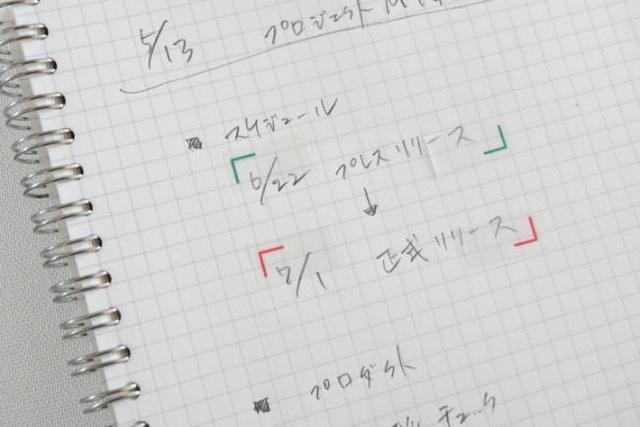 5/13 プロジェクト
■ スケジュール
6/22 プレスリリース
↓
7/1 正式リリース
■ プロダクト
チェック